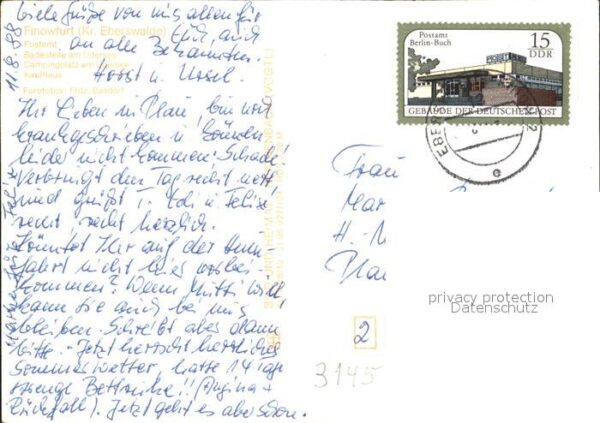 Viele Grüße von uns allen für
Euch, auch
an alle Bekannten.
Horst u. Ursel.
11.8.88
Finowfurt (Kr. Eberswalde)
Postamt
Badestelle am
Campingplatz am
Kaufhaus
Farbfotos: Fritz,
Ihr Lieben in Plau, bin noch
krankgeschrieben u. können
leider nicht kommen. Schade!
Verbringt den Tag recht nett
und grüßt T. Edi u. Felix
recht, recht herzlich.
Könntet Ihr auf der Heim-
fahrt nicht hier vorbei
kommen? Wenn Mutti will
kann sie auch bei uns
bleiben. Schreibt aber dann
bitte. - Jetzt herrscht herrliches
Sommerwetter, hatte 14 Tage
strenge Bettruhe!! (Angina +
Rückfall). Jetzt geht es aber schon.
Postamt
Berlin-Buch
15
DDR
GEBÄUDE DER DEUTSCHEN POST
Frau
Mar
H.-
Pla
privacy protection
Datenschutz
2
3145